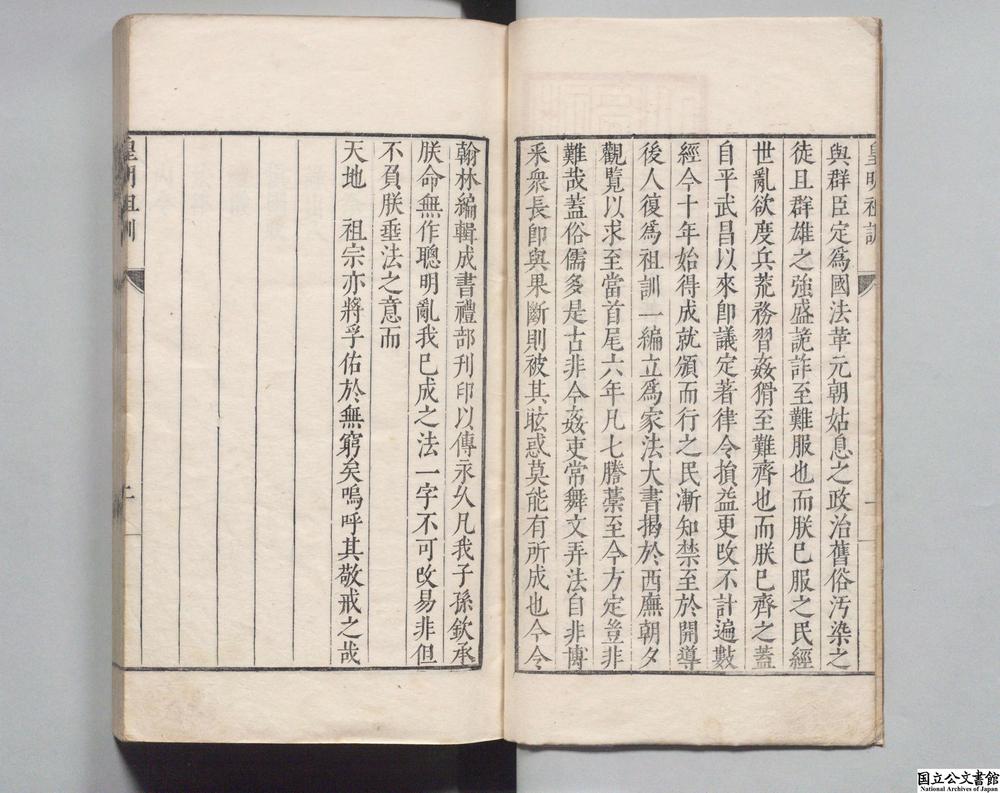 皇明祖訓
一
與群臣定爲國法革元朝姑息之政治舊俗汚染之
徒且群雄之強盛詭詐至難服也而朕已服之民經
世亂欲度兵荒務習姦猾至難齊也而朕已齊之蓋
自平武昌以來卽議定著律令損益更改不計遍數
經今十年始得成就頒而行之民漸知禁至於開導
後人復爲祖訓一編立爲家法大書揭於西廡朝夕
觀覽以求至當首尾六年凡七謄藁至今方定豈非
難哉蓋俗儒多是古非今姦吏常舞文弄法自非博
采衆長卽與果斷則被其眩惑莫能有所成也今令
翰林編輯成書禮部刊印以傳永久凡我子孫欽承
朕命無作聰明亂我已成之法一字不可改易非但
不負朕垂法之意而
天地　祖宗亦將孚佑於無窮矣嗚呼其敬戒之哉
皇明祖訓
二
国立公文書館
National Archives of Japan